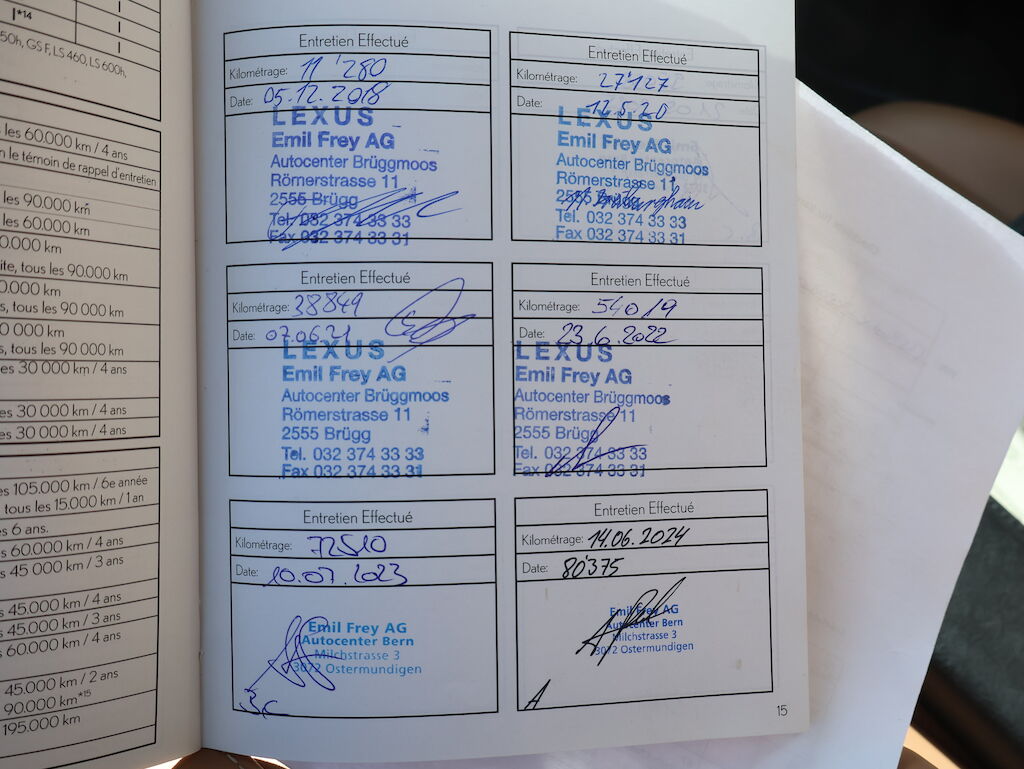 I*14
I
I
50h, GS F, LS 460, LS 600h,
s les 60.000 km / 4 ans
n le témoin de rappel d'entretien
les 90.000 km
les 60.000 km
0.000 km
ite, tous les 90.000 km
0.000 km
s, tous les 90 000 km
0 000 km
s, tous les 90 000 km
es 30 000 km / 4 ans
es 30 000 km / 4 ans
es 30 000 km / 4 ans
es 105.000 km / 6e année
tous les 15.000 km / 1 an
s 6 ans.
s 60.000 km / 4 ans
s 45 000 km / 3 ans
s 45.000 km / 4 ans
s 45.000 km / 3 ans
s 60.000 km / 4 ans
45.000 km / 2 ans
90.000 km*15
195.000 km
Entretien Effectué
Kilométrage: 11'280
Date: 05.12.2018
LEXUS
Emil Frey AG
Autocenter Brüggmoos
Römerstrasse 11
2555 Brügg
Tel. 032 374 33 33
Fax 032 374 33 31
Entretien Effectué
Kilométrage: 27'127
Date: 12.5.20
LEXUS
Emil Frey AG
Autocenter Brüggmoos
Römerstrasse 11
2555 Brügg
Tel. 032 374 33 33
Fax 032 374 33 31
Entretien Effectué
Kilométrage: 38849
Date: 07.06.21
LEXUS
Emil Frey AG
Autocenter Brüggmoos
Römerstrasse 11
2555 Brügg
Tel. 032 374 33 33
Fax 032 374 33 31
Entretien Effectué
Kilométrage: 54019
Date: 23.6.2022
LEXUS
Emil Frey AG
Autocenter Brüggmoos
Römerstrasse 11
2555 Brügg
Tel. 032 374 33 33
Fax 032 374 33 31
Entretien Effectué
Kilométrage: 72510
Date: 10.07.2023
Emil Frey AG
Autocenter Bern
Milchstrasse 3
3072 Ostermundigen
Entretien Effectué
Kilométrage: 14.06.2024
Date: 80'375
Emil Frey AG
Autocenter Bern
Milchstrasse 3
3072 Ostermundigen
A
15